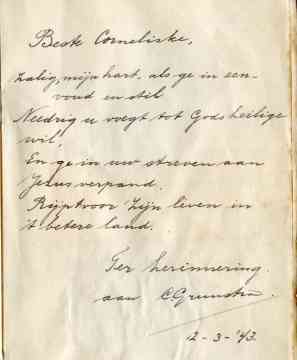 Beste Corneliske,
Zalig, mijn hart, als ge in een-
voud en stil
Needrig u voegt tot Gods heilige
wil,
En ge in uw streven aan
Jezus verpand.
Rijpt voor Zijn leven in
't betere land.
Ter herinnering
aan C Grunstra.
12-3-'43.